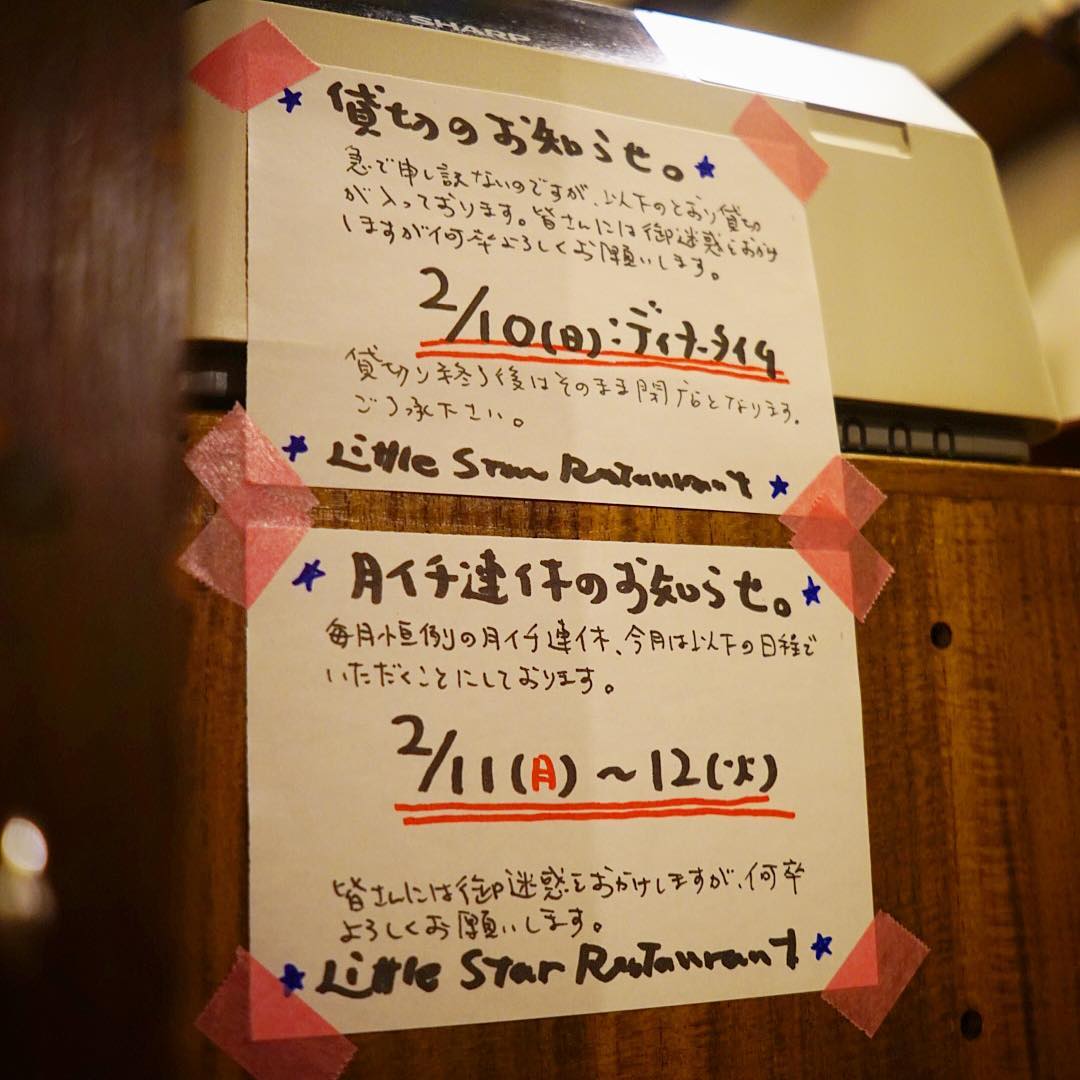 SHARP
貸切のお知らせ。
急で申し訳ないのですが、以下のとおり貸切
が入っております。皆さんには御迷惑をおかけ
しますが何卒よろしくお願いします。
2/10(日):ディナータイム
貸切り終了後はそのまま閉店となります。
ご了承下さい。
Little Star Restaurant
月イチ連休のお知らせ。
毎月恒例の月イチ連休、今月は以下の日程で
いただくことにしております。
2/11(月)~12(火)
皆さんには御迷惑をおかけしますが、何卒
よろしくお願いします。
Little Star Restaurant